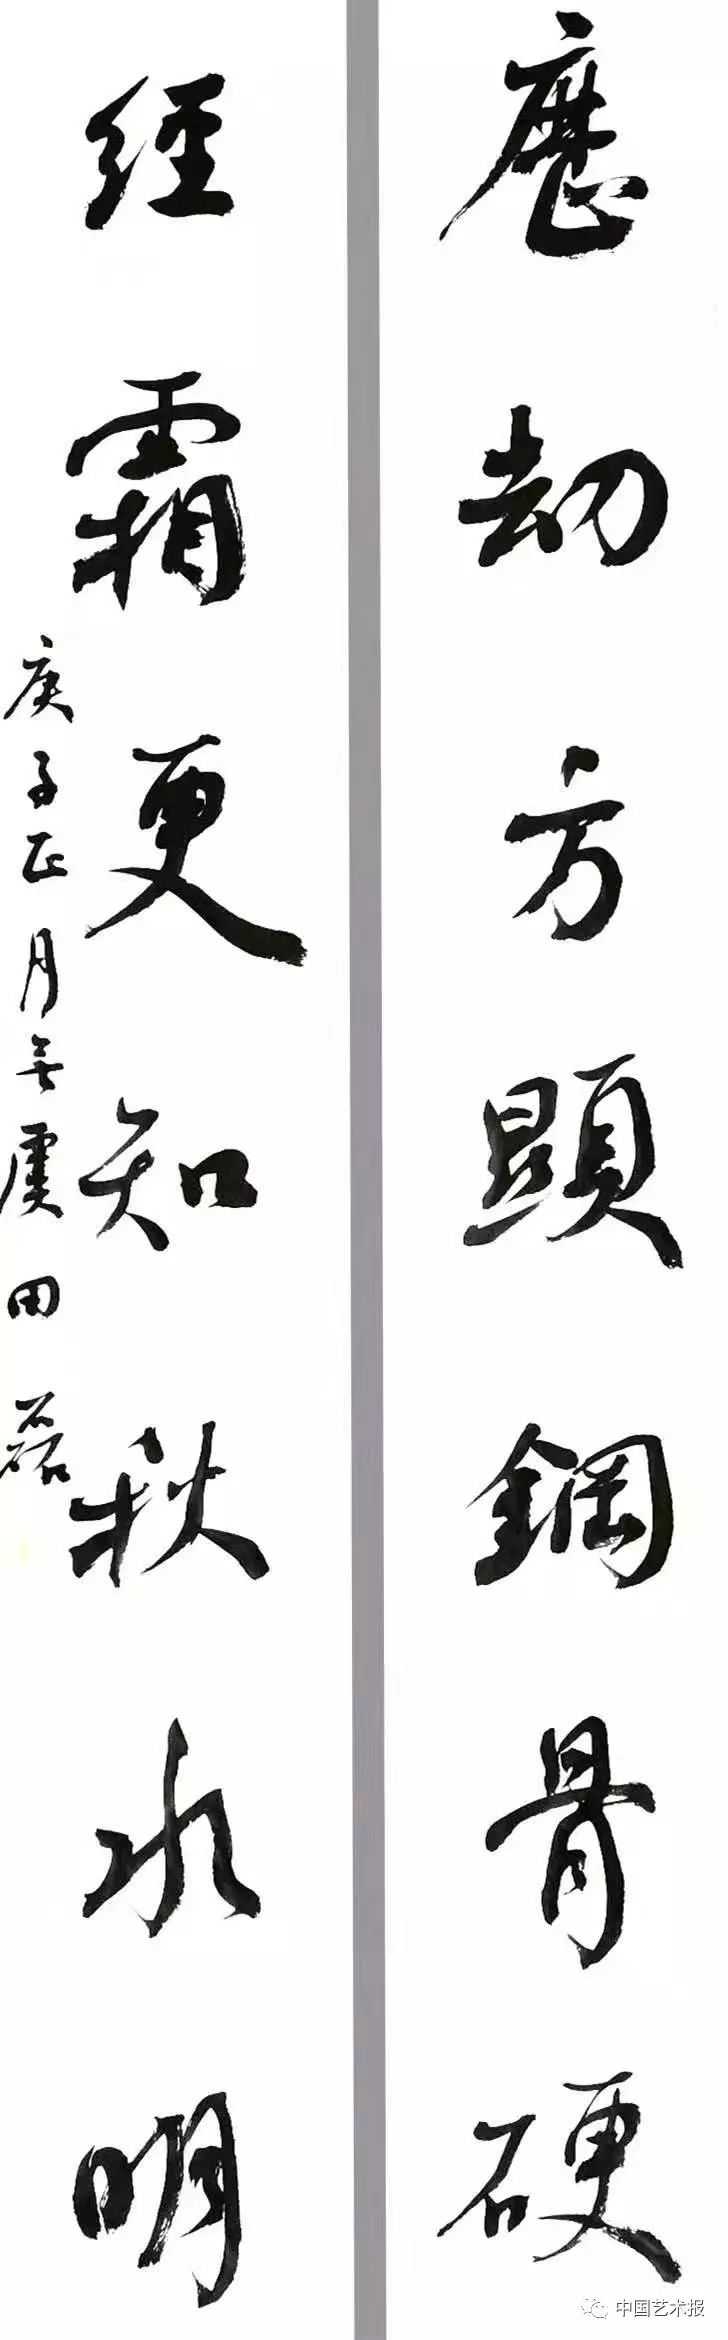 歷劫方顯鋼骨硬
經霜更知秋水明
庚子正月無虞田磊
中国艺术报